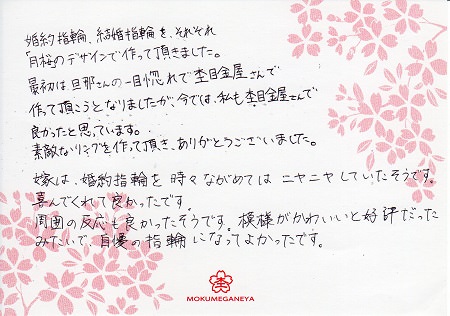 婚約指輪、結婚指輪を、それぞれ
「月桜のデザインで作って頂きました。
最初は旦那さんの一目惚れで杢目金屋さんで
作って頂こうとなりましたが、今では、私も杢目金屋さんで
良かったと思っています。
素敵なリングを作って頂き、ありがとうございました。
嫁は、婚約指輪を時々ながめてはニヤニヤしていたそうです。
喜んでくれて良かったです。
周囲の反応も良かったそうです。模様がかわいいと好評だった
みたいで、自慢の指輪になってよかったです。
杢
MOKUMEGANEYA